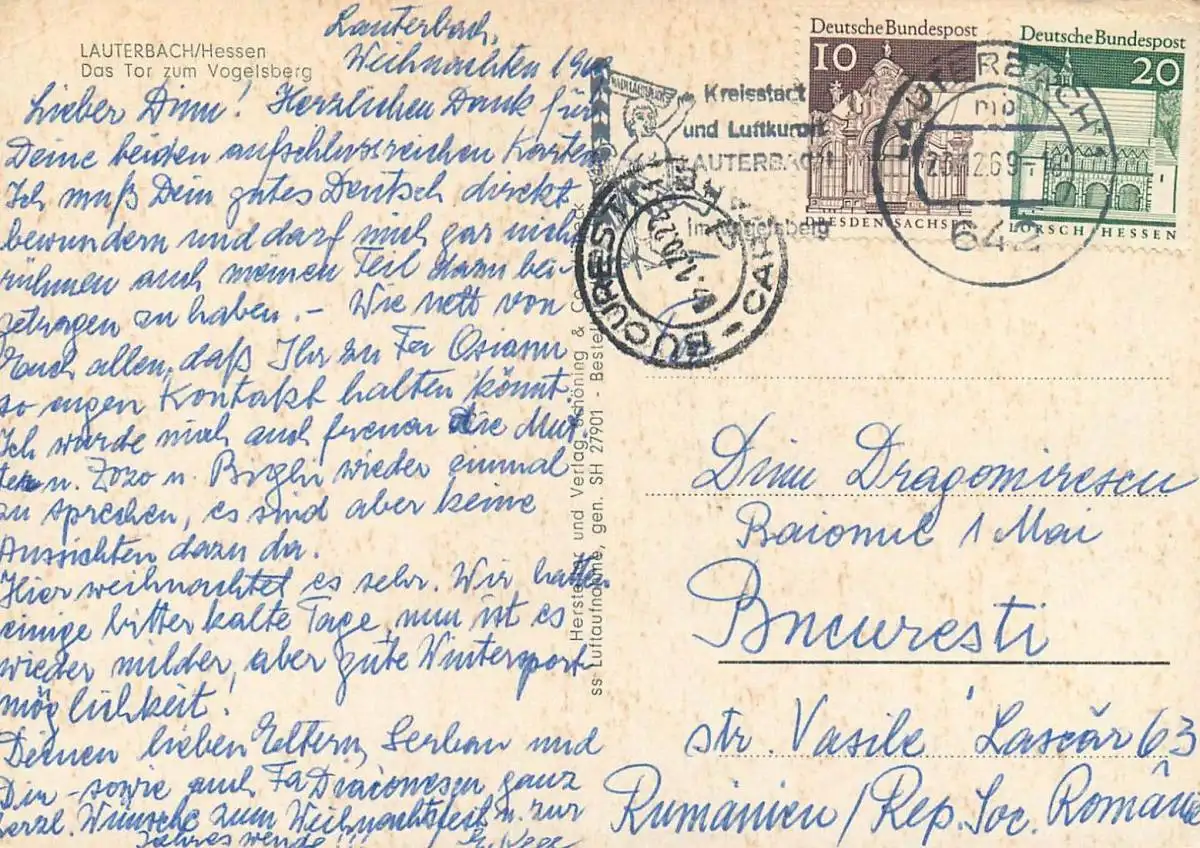 LAUTERBACH/Hessen
Das Tor zum Vogelsberg
Lauterbach,
Weihnachten
Lieber Dinu! Herzlichen Dank für
Deine beiden aufschlussreichen Karten
Ich muß Dein gutes Deutsch direkt
bewundern und darf mich gar nicht
rühmen auch meinen Teil dazu bei-
getragen zu haben. - Wie nett von
Euch allen, daß Ihr zu Fa Osianu
so engen Kontakt halten könnt.
Ich würde mich auch freuen die Mut-
ter u. Zozo u. wieder einmal
zu sprechen, es sind aber keine
Aussichten dazu da.
Hier weihnachtet es sehr. Wir hatten
einige bitter kalte Tage, nun ist es
wieder milder, aber gute Wintersport
möglichkeit!
Deinen lieben Eltern, Serban und
Din - sowie auch Fa Diaconescu ganz
herzl. Wünsche zum Weihnachtsfest u. zur
Jahreswende!!!
Hersteller und Verlag Schöning & Co
ss Luftaufnahme, gen. SH 27901 - Bestell
Kreisstadt
und Luftkurort
LAUTERBACH
im Vogelsberg
BUCURESTI
CARTARE
Deutsche Bundespost
10
DRESDEN-SACHSEN
Deutsche Bundespost
20
LORSCH/HESSEN
LAUTERBACH
23.12.69-18
642
Dinu Dragomirescu
Raionul 1 Mai
Bucuresti
str. Vasile Lascăr 63
Rumänien/Rep. Soc. Română